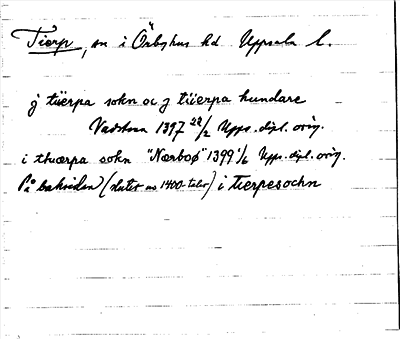 Tierp, sn i Örbyhus hd Uppsala l.
j tiierpa sokn oc j tiierpa hundare
Vadstena 1397 22/2 Upps. dipl. orig.
i thærpa sokn "Nærboø" 1399 1/6 Upps. dipl. orig.
På baksidan (slutet av 1400-talet) i Tierpesochn